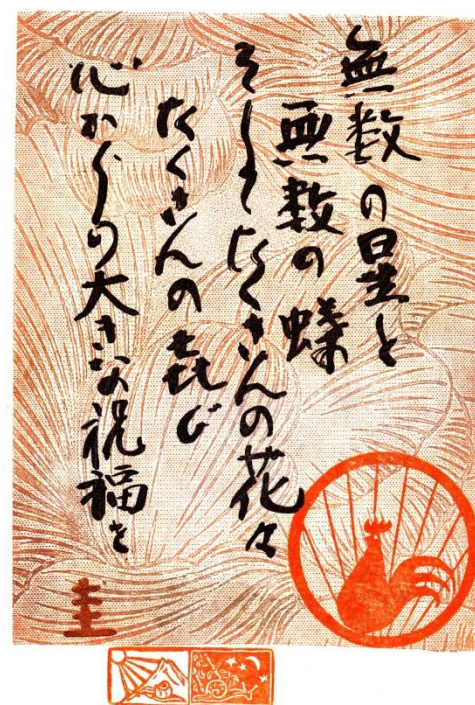 無数の星と
無数の蝶
そしてたくさんの花々
たくさんの喜び
心からの大きな祝福を
圭